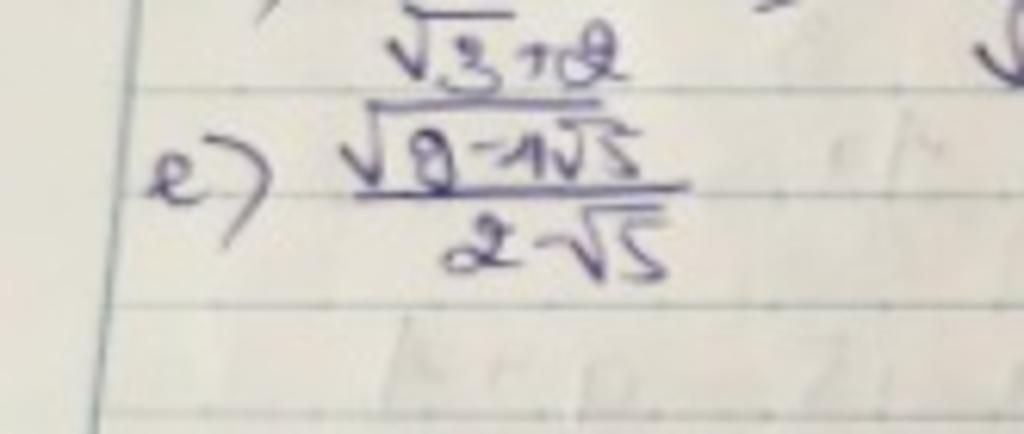 √3+2
e) √(9-4√5) / (2-√5)